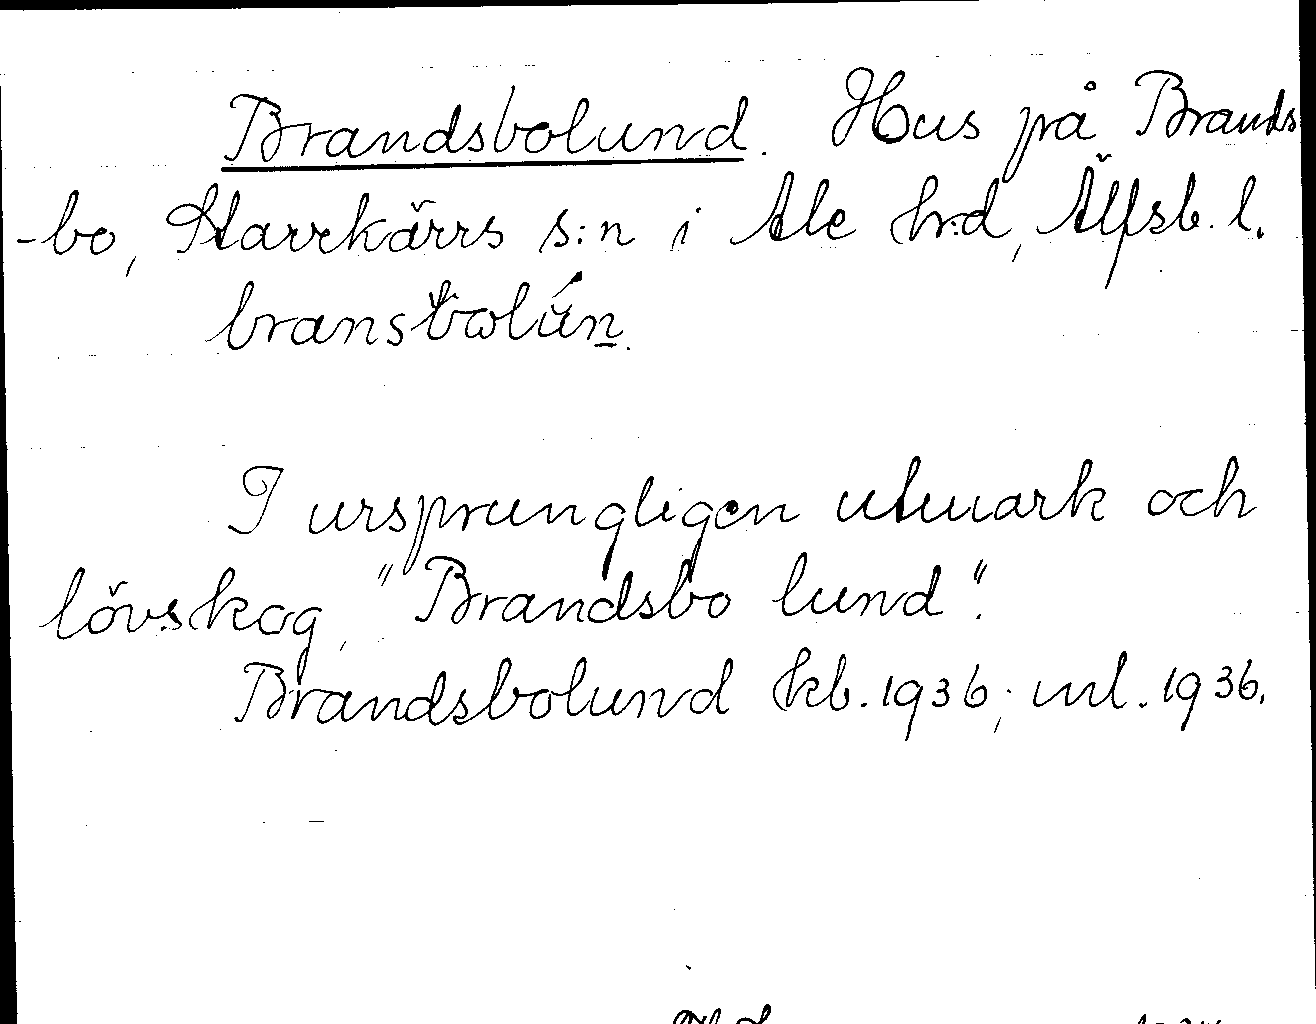 Brandsbolund. Hus på Brands
-bo, Starrkärrs s:n i Ale hrd, Älfsb. l.
I ursprungligen utmark och
lövskog, "Brandsbo lund".
Brandsbolund kb. 1936; ml. 1936.